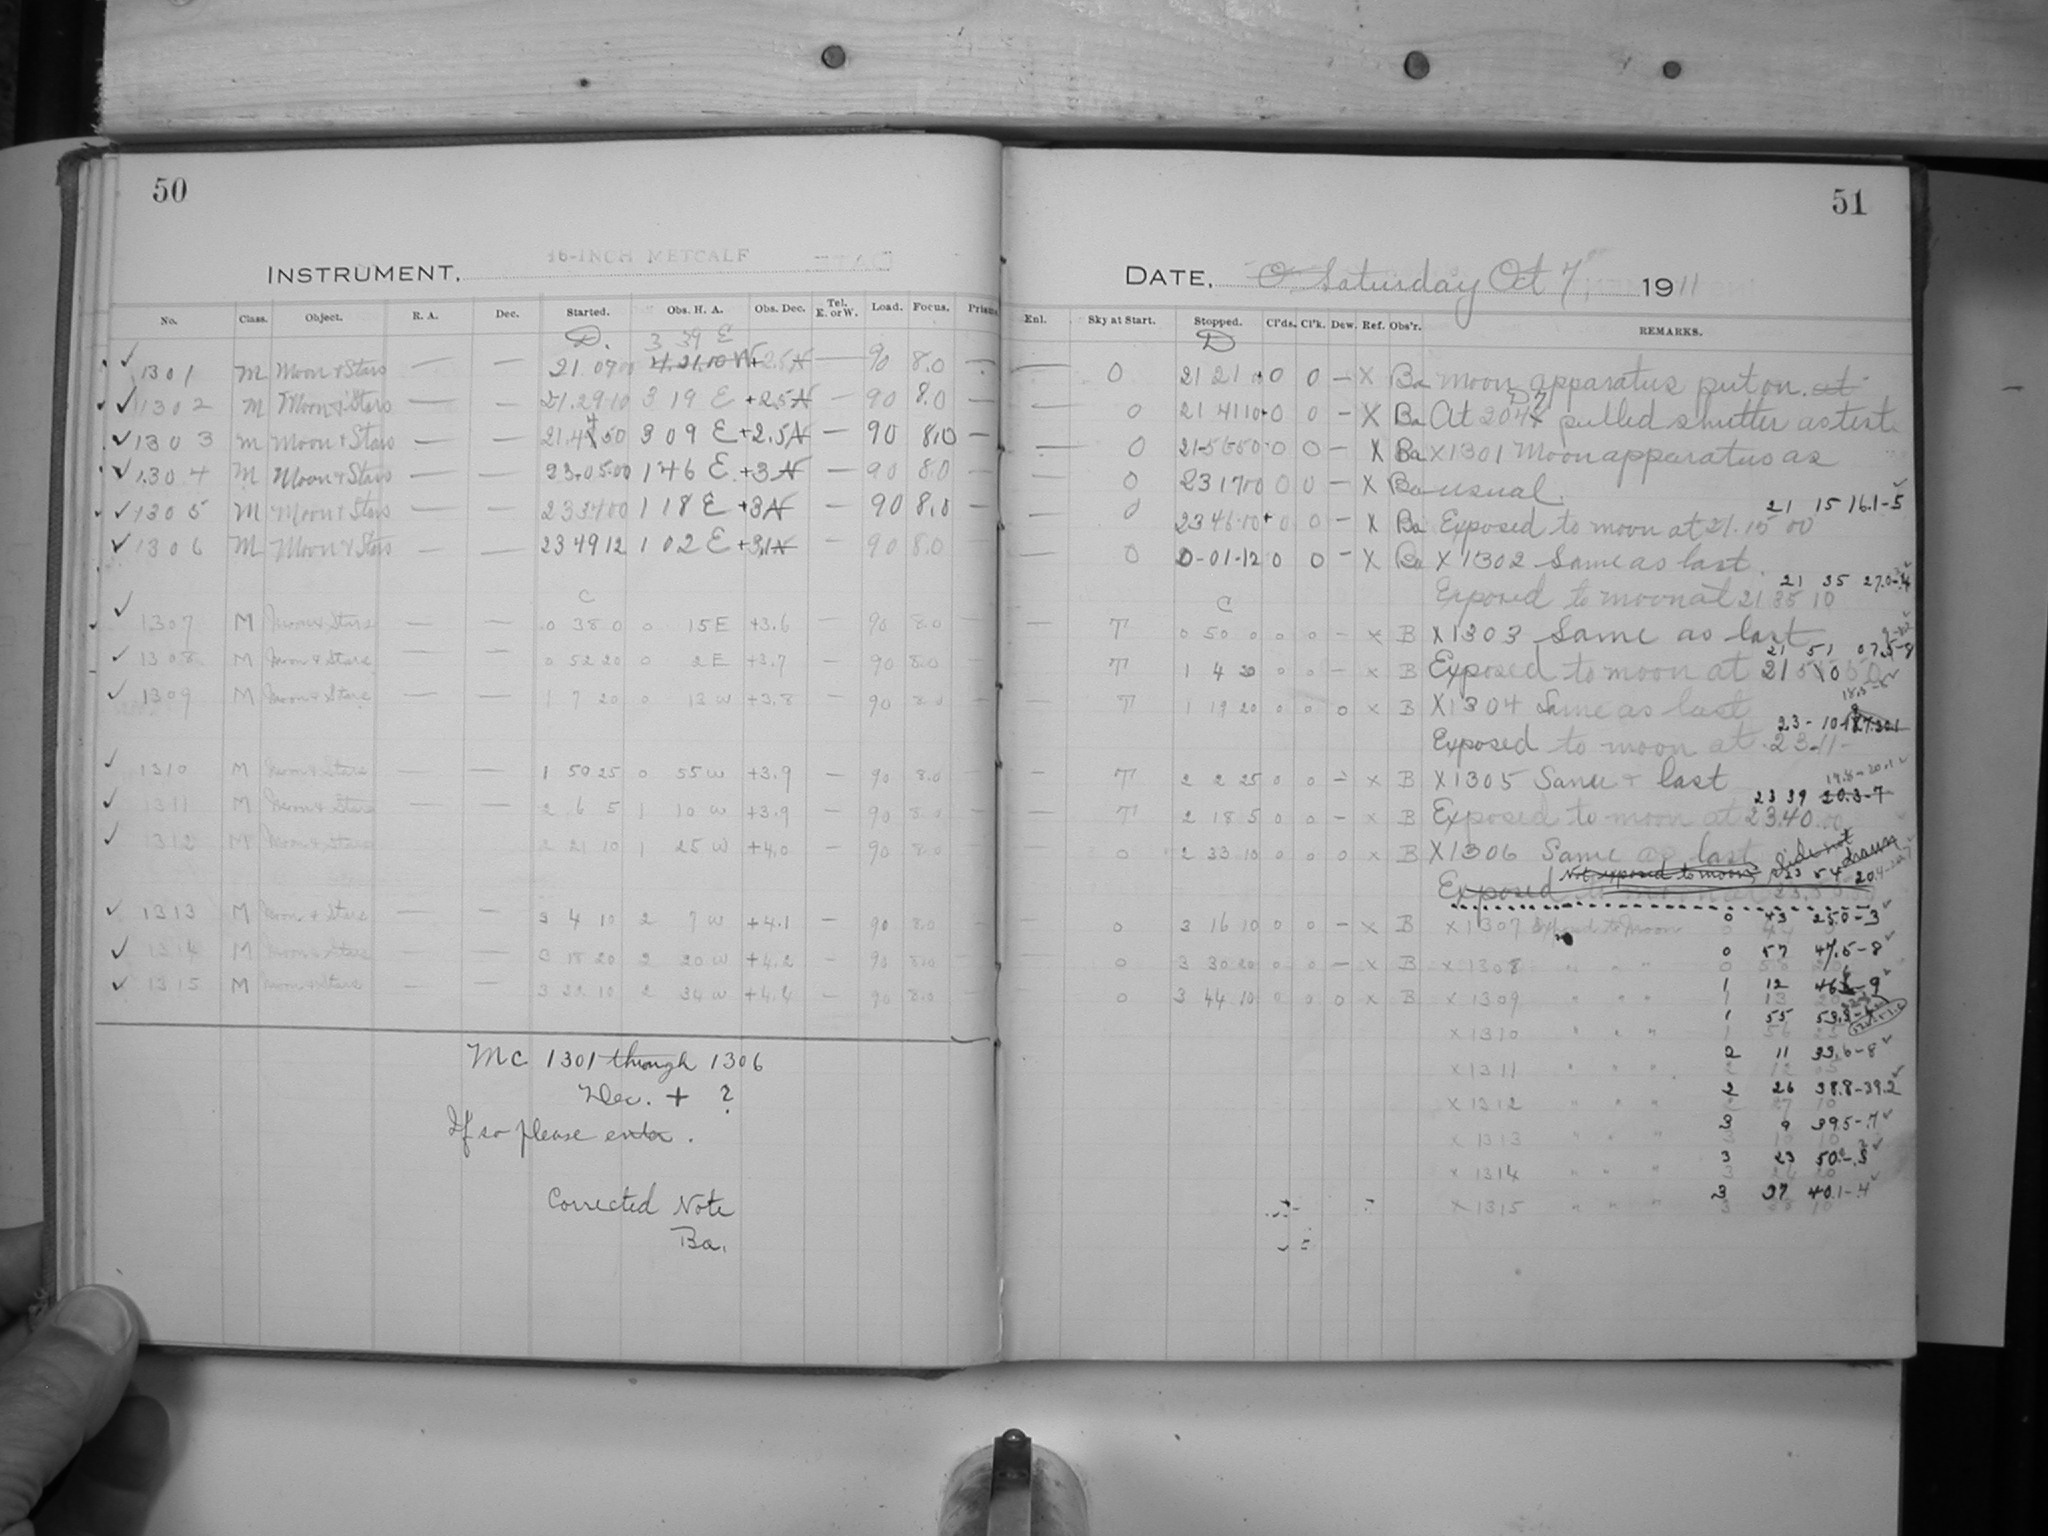 50
16-INCH METCALF
INSTRUMENT,
No. Class. Object. R. A. Dec. Started. Obs. H. A. Obs. Dec. Tel. E. or W. Load. Focus. Prism
D. 3 39 E
✓ 1301 M Moon & Stars — — 21 07 00 4.21.10 W +2.5 N — 90 8.0 —
✓ 1302 M Moon & Stars — — 21.29 10 3 19 E +2.5 N — 90 8.0 —
✓ 1303 M Moon & Stars — — 21.44 50 3 09 E +2.5 N — 90 8.0 —
✓ 1304 M Moon & Stars — — 23.05.00 1 46 E +3 N — 90 8.0 —
✓ 1305 M Moon & Stars — — 233400 1 18 E +3 N — 90 8.0 —
✓ 1306 M Moon & Stars — — 23 49 12 1 02 E +3.1 N — 90 8.0 —
C
✓ 1307 M Moon & Stars — — 0 38 0 0 15 E +3.6 — 90 8.0 —
✓ 1308 M Moon & Stars — — 0 52 20 0 2 E +3.7 — 90 8.0
✓ 1309 M Moon & Stars — — 1 7 20 0 13 W +3.8 — 90 8.0
✓ 1310 M Moon & Stars — — 1 50 25 0 55 W +3.9 — 90 8.0 —
✓ 1311 M Moon & Stars — — 2 6 5 1 10 W +3.9 — 90 8.0 —
✓ 1312 M Moon & Stars 2 21 10 1 25 W +4.0 — 90 8.0
✓ 1313 M Moon & Stars — — 3 4 10 2 7 W +4.1 — 90 8.0 —
✓ 1314 M Moon & Stars 3 18 20 2 20 W +4.2 — 90 8.0
✓ 1315 M Moon & Stars — — 3 32 10 2 34 W +4.4 — 90 8.0
MC 1301 through 1306
Dec. + ?
If so please enter.
Corrected Note
Ba.
51
DATE, Saturday Oct 7, 1911
Enl. Sky at Start. Stopped. Cl'ds. Cl'k. Dew. Ref. Obs'r. REMARKS.
D
— 0 21 21 0 0 — X Ba Moon apparatus put on. at
— 0 21 41 10 0 0 — X Ba At 20 47 pulled shutter as test.
— 0 21-56-50 0 0 — X Ba X1301 Moon apparatus as
— 0 23 17 00 0 0 — X Ba usual.
21 15 16.1-5
0 23 46.10 0 0 — X Ba Exposed to moon at 21.15 00
— 0 0-01-12 0 0 — X Ba X 1302 Same as last.
21 35 27.0
Exposed to moon at 21 35 10
C
— T 0 50 0 0 0 — X B X1303 Same as last
21 51 07.5-8
T 1 4 20 0 0 — X B Exposed to moon at 21
T 1 19 20 0 0 0 X B X1304 Same as last
23-10
Exposed to moon at 23-11-
— T 2 2 25 0 0 — X B X1305 Same & last
23 39 20.3-7
— T 2 18 5 0 0 — X B Exposed to moon at 23.40.00
0 2 33 10 0 0 0 X B X1306 Same as last Slide not drawn
Not exposed to moon 23 54 20.4
Exposed to moon at
0 43 25.0-3
0 3 16 10 0 0 — X B X1307 Exposed to Moon
0 57 47.5-8
0 3 30 20 0 0 — X B X 1308 " " "
1 12
0 3 44 10 0 0 0 X B X 1309 " " " 1 13 20
1 55
X 1310 " " " 1 56 25
2 11 33.6-8
X 1311 " " " 2 12 05
2 26 38.8-39.2
X 1312 " " " 2 27 10
3 9 39.5-.7
X 1313 " " " 3 10 10
3 23
X 1314 " " "
3 37 40.1-.4
X 1315 " " "